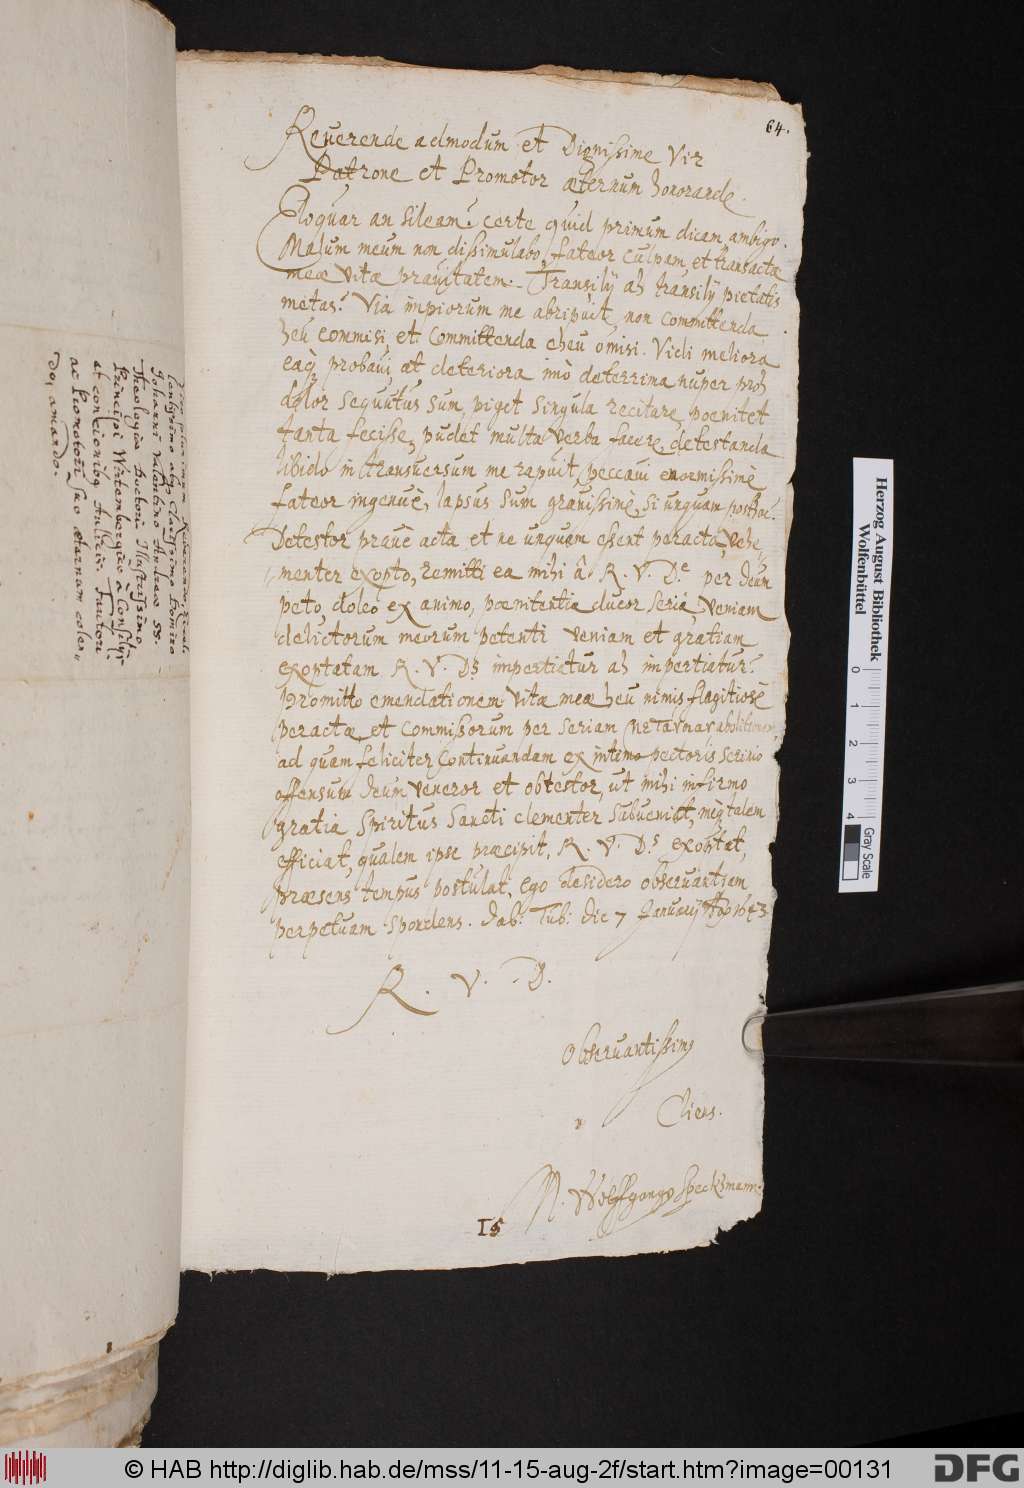 64.
Reuerende admodum et Dignissime Vir
Patrone et Promotor æternum honorande.
Eloquar an sileam? certe quid primum dicam ambigo.
Malum meum non dissimulabo, fateor culpam et transactæ
meæ vitæ prauitatem. Transilij ah transilij pietatis
metas! Via impiorum me abripuit, non committenda
heu commisi, et committenda eheu omisi. Vidi meliora
eaq, probaui at deteriora imò deterrima nuper proh
dolor sequutus sum, piget singula recitare, poenitet
tanta fecisse, pudet multa verba facere, detestanda
libido in transuersum me rapuit, peccaui enormissimè
fateor ingenuè, lapsus sum grauissimè, si unquam posthac.
Detestor prauè acta et ne unquam essent peracta, vehe-
menter exopto, remitti ea mihi â R. V. D.e per deum
peto, doleo ex animo, poenitentia ducor seria, veniam
delictorum meorum petenti veniam et gratiam
exoptatam R. V. Ds impertiatur ah impertiatur!
Promitto emendationem vitæ meæ heu nimis flagitiosè
peractæ, et commissorum per seriam μετάνοιαν abolitionem,
ad quam feliciter continuandam ex intimo pectoris scrinio
offensum deum veneror et obtestor, ut mihi infirmo
gratia Spiritus Sancti clementer subueniat, meq, talem
efficiat, qualem ipse præcipit, R. V. D.s exoptat,
præsens tempus postulat, ego desidero obseruantiam
perpetuam spondens. dab: Tub: die 7 Januarij Ao 1643
R. V. D.
Obseruantissimus
Cliens.
M. Wolffgangus Speckmann
15
Viro plurimum Reuerendo, Excel-
lentissimo atq, Clarissimo Domino
Johanni Valentino Andreæ SS.
Theologiæ Doctori Illustrissimo
Principi Wirtembergico à Consilijs
et concionibq, Aulicis. Fautori
ac Promotori suo æternum colen-
do, amando.
Herzog August Bibliothek
Wolfenbüttel
0 1 2 3 4
Gray Scale
© HAB http://diglib.hab.de/mss/11-15-aug-2f/start.htm?image=00131
DFG